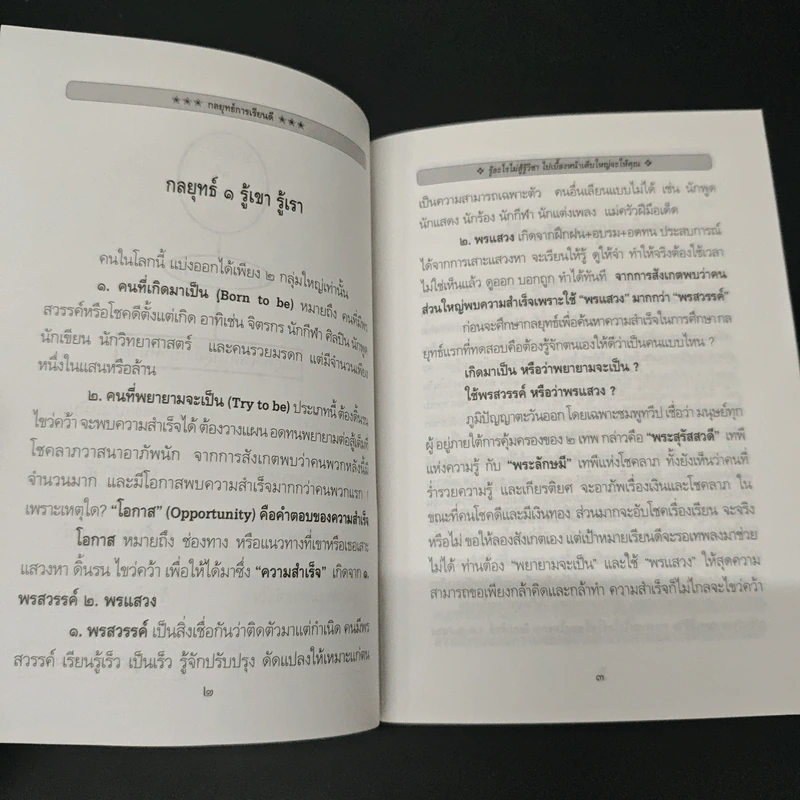 ★★★ กลยุทธ์การเรียนดี ★★★
กลยุทธ์ ๑ รู้เขา รู้เรา
คนในโลกนี้ แบ่งออกได้เพียง ๒ กลุ่มใหญ่เท่านั้น
๑. คนที่เกิดมาเป็น (Born to be) หมายถึง คนที่มีพร
สวรรค์หรือโชคดีตั้งแต่เกิด อาทิเช่น จิตรกร นักกีฬา ศิลปิน นักพูด
นักเขียน นักวิทยาศาสตร์ และคนรวยมรดก แต่มีจำนวนเพียง
หนึ่งในแสนหรือล้าน
๒. คนที่พยายามจะเป็น (Try to be) ประเภทนี้ ต้องดิ้นรน
ไขว่คว้า จะพบความสำเร็จได้ ต้องวางแผน อดทนพยายามต่อสู้เต็มที่
โชคลาภวาสนาอาภัพนัก จากการสังเกตพบว่าคนพวกหลังนี้มี
จำนวนมาก และมีโอกาสพบความสำเร็จมากกว่าคนพวกแรก !
เพราะเหตุใด? "โอกาส" (Opportunity) คือคำตอบของความสำเร็จ
โอกาส หมายถึง ช่องทาง หรือแนวทางที่เขาหรือเธอเสาะ
แสวงหา ดิ้นรน ไขว่คว้า เพื่อให้ได้มาซึ่ง "ความสำเร็จ" เกิดจาก ๑.
พรสวรรค์ ๒. พรแสวง
๑. พรสวรรค์ เป็นสิ่งเชื่อกันว่าติดตัวมาแต่กำเนิด คนมีพร
สวรรค์ เรียนรู้เร็ว เป็นเร็ว รู้จักปรับปรุง ดัดแปลงให้เหมาะแก่ตน
๒
❖ รู้อะไรไม่สู้รู้วิชา ไปเบื้องหน้าเติบใหญ่จะให้คุณ ❖
เป็นความสามารถเฉพาะตัว คนอื่นเลียนแบบไม่ได้ เช่น นักพูด
นักแสดง นักร้อง นักกีฬา นักแต่งเพลง แม่ครัวฝีมือเด็ด
๒. พรแสวง เกิดจากฝึกฝน+อบรม+อดทน ประสบการณ์
ได้จากการเสาะแสวงหา จะเรียนให้รู้ ดูให้จำ ทำให้จริงต้องใช้เวลา
ไม่ใช่เห็นแล้ว ดูออก บอกถูก ทำได้ทันที จากการสังเกตพบว่าคน
ส่วนใหญ่พบความสำเร็จเพราะใช้ "พรแสวง" มากกว่า "พรสวรรค์"
ก่อนจะศึกษากลยุทธ์เพื่อค้นหาความสำเร็จในการศึกษา กล
ยุทธ์แรกที่ทดสอบคือต้องรู้จักตนเองให้ดีว่าเป็นคนแบบไหน ?
เกิดมาเป็น หรือว่าพยายามจะเป็น ?
ใช้พรสวรรค์ หรือว่าพรแสวง ?
ภูมิปัญญาตะวันออก โดยเฉพาะชมพูทวีป เชื่อว่า มนุษย์ทุก
ผู้ อยู่ภายใต้การคุ้มครองของ ๒ เทพ กล่าวคือ "พระสุรัสสวดี" เทพี
แห่งความรู้ กับ "พระลักษมี" เทพีแห่งโชคลาภ ทั้งยังเห็นว่าคนที่
ร่ำรวยความรู้ และเกียรติยศ จะอาภัพเรื่องเงินและโชคลาภ ใน
ขณะที่คนโชคดีและมีเงินทอง ส่วนมากจะอับโชคเรื่องเรียน จะจริง
หรือไม่ ขอให้ลองสังเกตเอง แต่เป้าหมายเรียนดีจะรอเทพลงมาช่วย
ไม่ได้ ท่านต้อง "พยายามจะเป็น" และใช้ "พรแสวง" ให้สุดความ
สามารถขอเพียงกล้าคิดและกล้าทำ ความสำเร็จก็ไม่ไกลจะไขว่คว้า
๓